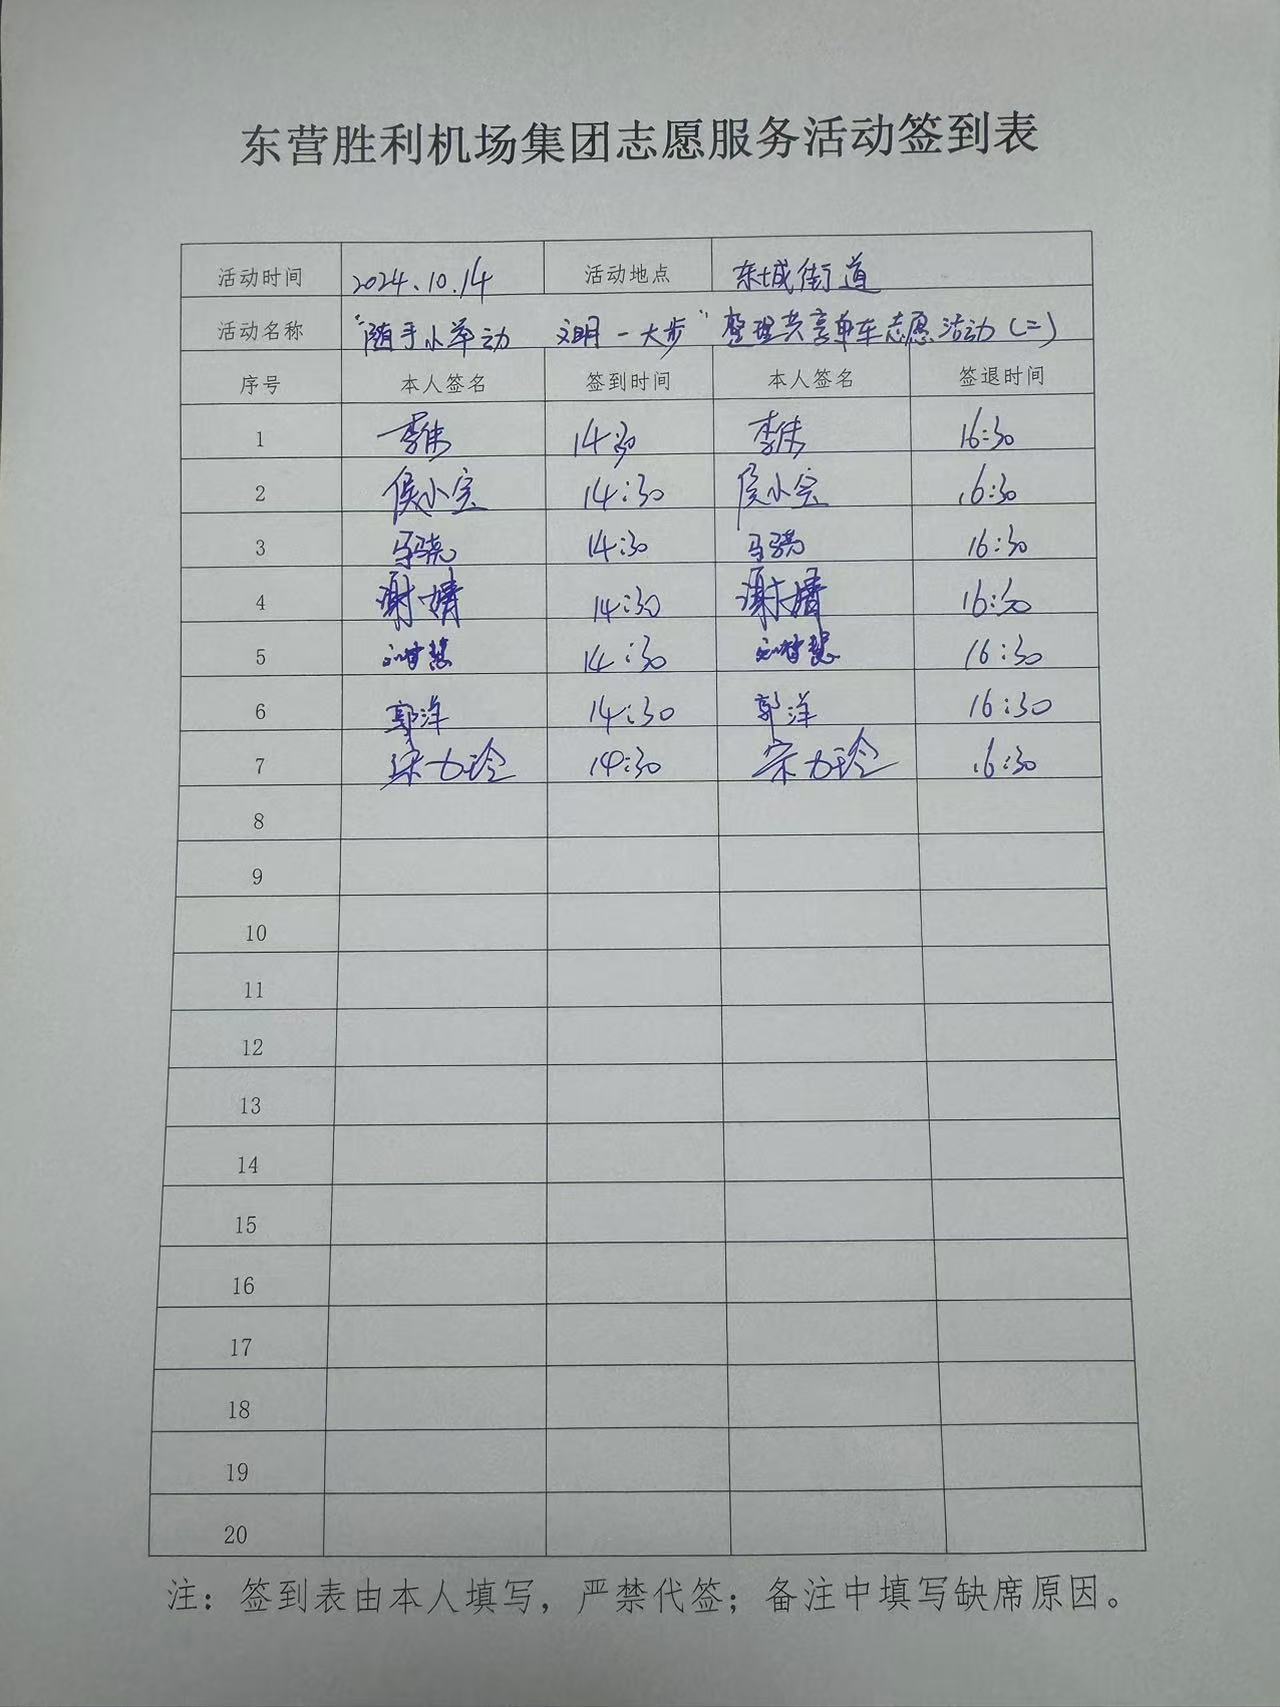 东营胜利机场集团志愿服务活动签到表
活动时间 2024.10.14 活动地点 东城街道
活动名称 “随手小举动 文明一大步”整理共享单车志愿活动(二)
序号 本人签名 签到时间 本人签名 签退时间
1 李伟 14:30 李伟 16:30
2 侯小宝 14:30 侯小宝 16:30
3 马骁 14:30 马骁 16:30
4 谢婧 14:30 谢婧 16:30
5 刘智慧 14:30 刘智慧 16:30
6 郭洋 14:30 郭洋 16:30
7 宋力玲 14:30 宋力玲 16:30
8
9
10
11
12
13
14
15
16
17
18
19
20
注：签到表由本人填写，严禁代签；备注中填写缺席原因。